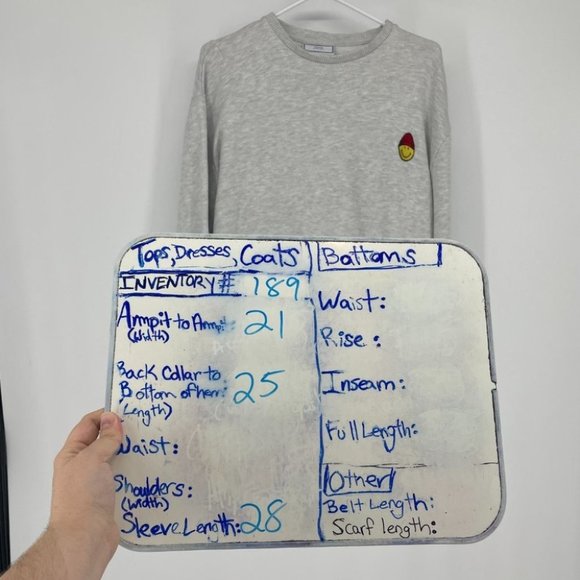 Tops, Dresses, Coats
INVENTORY # 189
Armpit to Armpit: 21
(Width)
Back Collar to
Bottom of hem: 25
(Length)
Waist:
Shoulders:
(Width)
Sleeve Length: 28
Bottoms
Waist:
Rise:
Inseam:
Full Length:
Other
Belt Length:
Scarf length: